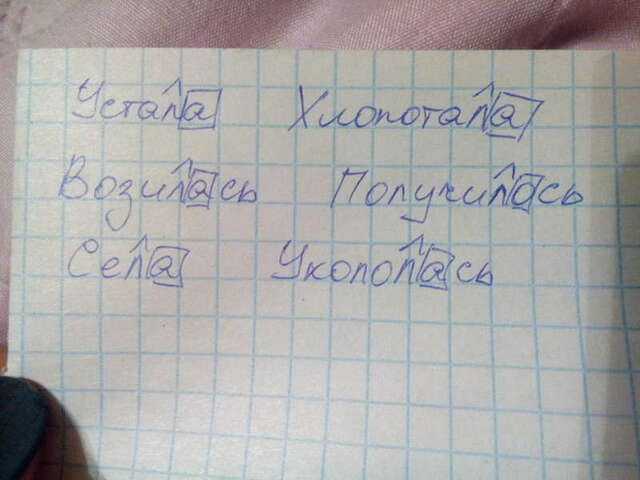 Устала Хлопотала
Возилась Получилась
Села Укололась